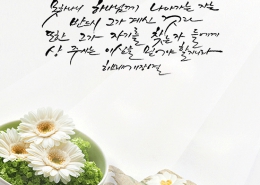 못하나니 하나님께 나아가는 자는
반드시 그가 계신 것과
또한 그가 자기를 찾는 자들에게
상 주시는 이심을 믿어야 할지니라
히브리서 11장 6절